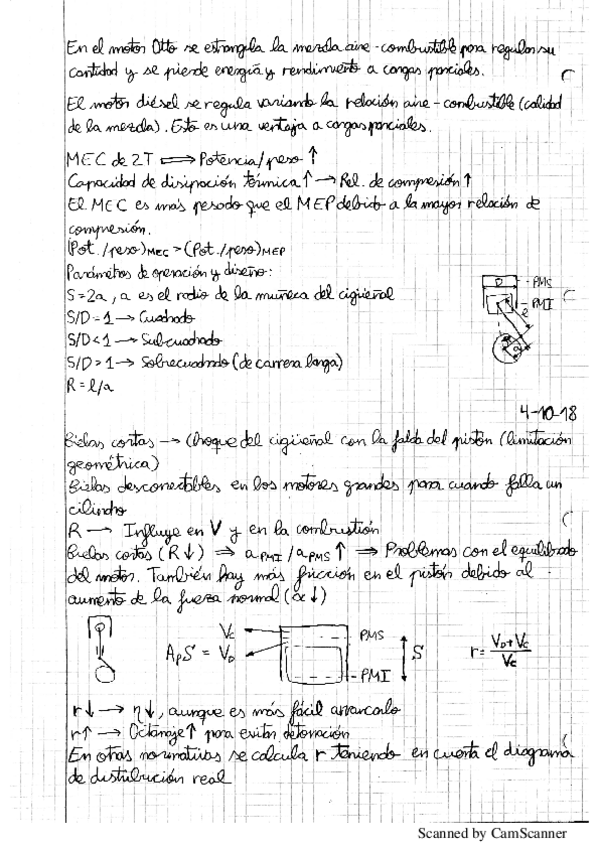 En el motor Otto se estrangula la mezcla aire-combustible para regular su
cantidad y se pierde energía y rendimiento a cargas parciales.
El motor diésel se regula variando la relación aire-combustible (calidad
de la mezcla). Esto es una ventaja a cargas parciales.
MEC de 2T ⟺ Potencia/peso ↑
Capacidad de disipación térmica ↑ → Rel. de compresión ↑
El MEC es más pesado que el MEP debido a la mayor relación de
compresión.
(Pot./peso)MEC > (Pot./peso)MEP
Parámetros de operación y diseño:
S=2a, a es el radio de la muñeca del cigüeñal
S/D=1 → Cuadrado
S/D<1 → Subcuadrado
S/D>1 → Sobrecuadrado (de carrera larga)
R=l/a
D
PMS
PMI
l
a
4-10-18
Bielas cortas → Choque del cigüeñal con la falda del pistón (limitación
geométrica)
Bielas desconectables en los motores grandes para cuando falla un
cilindro
R → Influye en V y en la combustión
Bielas cortas (R↓) ⟹ aPMI/aPMS ↑ ⟹ Problemas con el equilibrado
del motor. También hay más fricción en el pistón debido al
aumento de la fuerza normal (α↓)
VC
PMS
ApS = VD
S
r = (VD+VC)/VC
PMI
r↓ → η↓, aunque es más fácil arrancarlo
r↑ → Octanaje ↑ para evitar detonación
En otras normativas se calcula r teniendo en cuenta el diagrama
de distribución real
Scanned by CamScanner